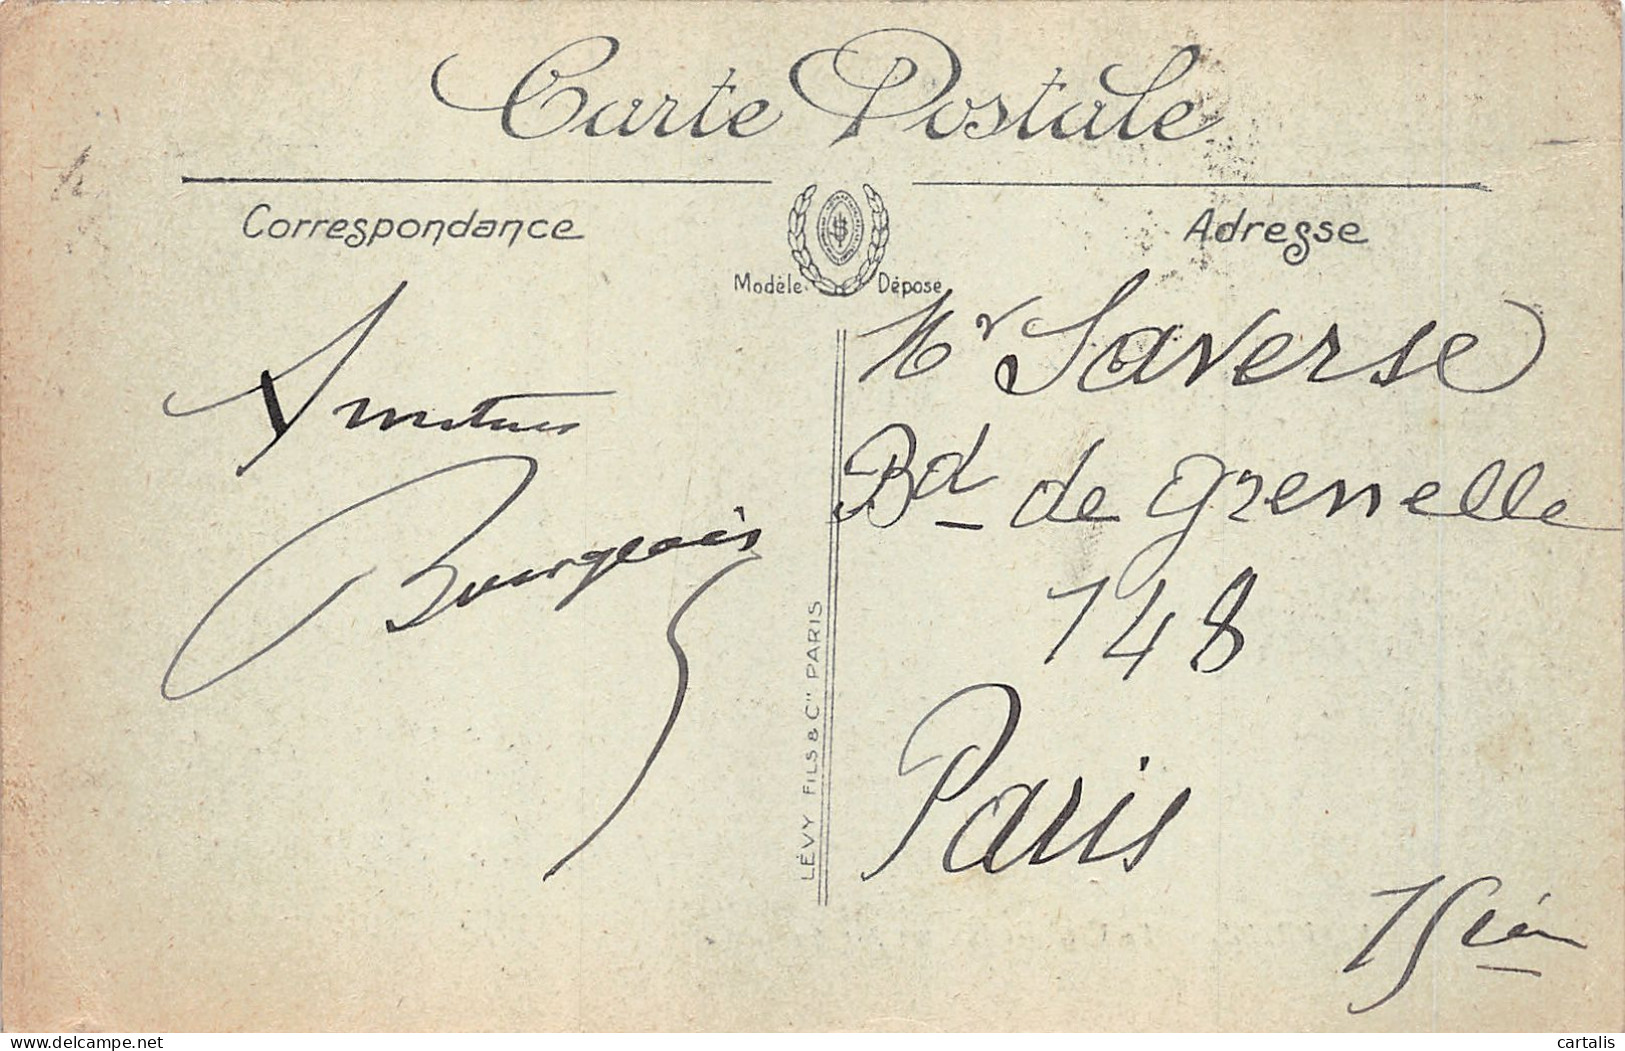 Carte Postale
Correspondance
Adresse
Modèle Déposé
Amitiés
Bourgeois
LÉVY FILS & Cie PARIS
Mr Saverse
Bd de Grenelle
148
Paris
15ième
delcampe.net
cartalis